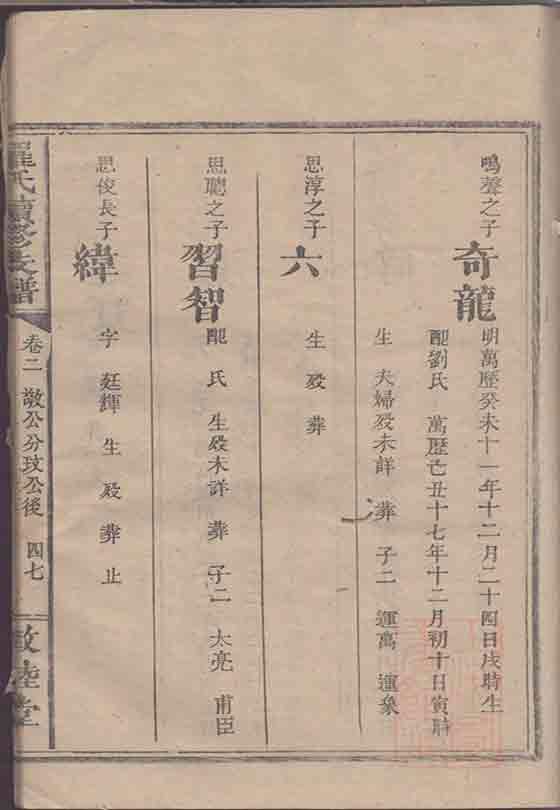 鳴聲之子
奇龍
明萬歷癸未十一年十二月二十四日戌時生
配劉氏 萬歷己丑十七年十二月初十日寅時
生 夫婦殁未詳 葬 子二 運萬 運象
思淳之子
六
生 殁 葬
思聰之子
習智
配 氏 生殁未詳 葬 子二 太亮 甫臣
思俊長子
緯
字 廷輝 生 殁 葬 止
羅氏續修支譜
卷二 敬公分玟公後 四七
敦睦堂